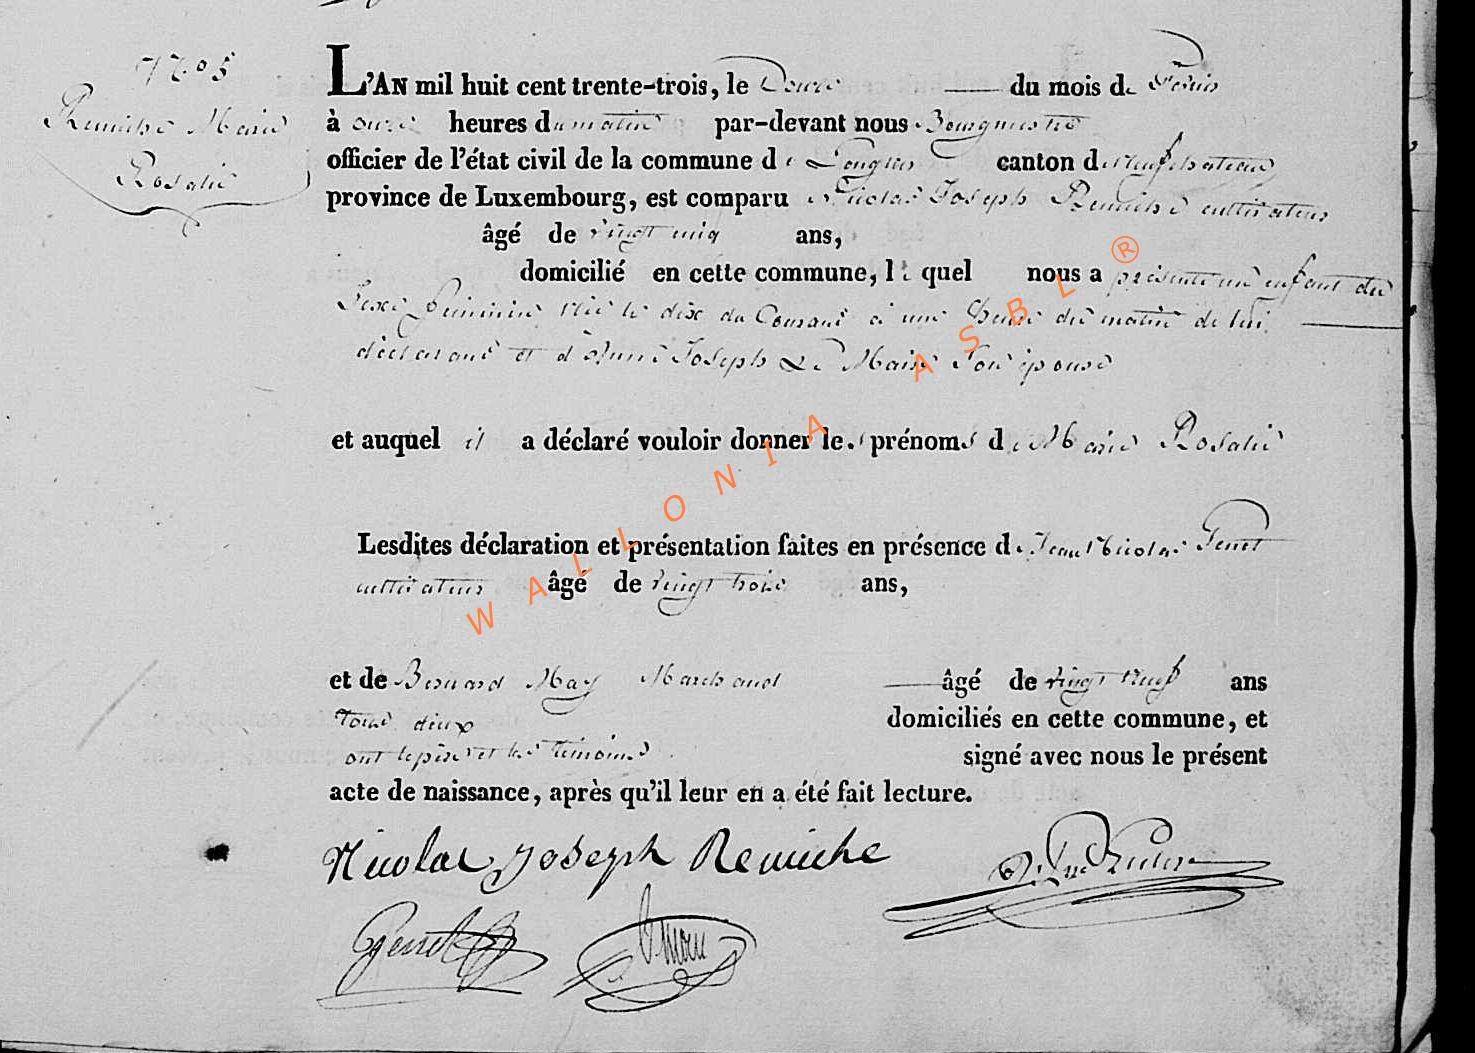 N° 5
Remiche Marie
Rosalie
L'AN mil huit cent trente-trois, le Douze du mois de
à onze heures du matin par-devant nous Bourgmestre
officier de l'état civil de la commune de Longlier canton de Neufchateau
province de Luxembourg, est comparu Nicolas Joseph Remiche cultivateur
âgé de vingt cinq ans,
domicilié en cette commune, le quel nous a présenté un enfant du
Sexe féminin née le dix du Courant à une heure du matin de lui
déclarant et d'Anne Joseph Le Maire son épouse
et auquel il a déclaré vouloir donner les prénoms de Marie Rosalie
Lesdites déclaration et présentation faites en présence de Jean Nicolas
cultivateur âgé de vingt trois ans,
et de Bernard May Marchand âgé de vingt neuf ans
tous deux domiciliés en cette commune, et
ont le père et les témoins signé avec nous le présent
acte de naissance, après qu'il leur en a été fait lecture.
Nicolas Joseph Remiche
WALLONIA ASBL ®